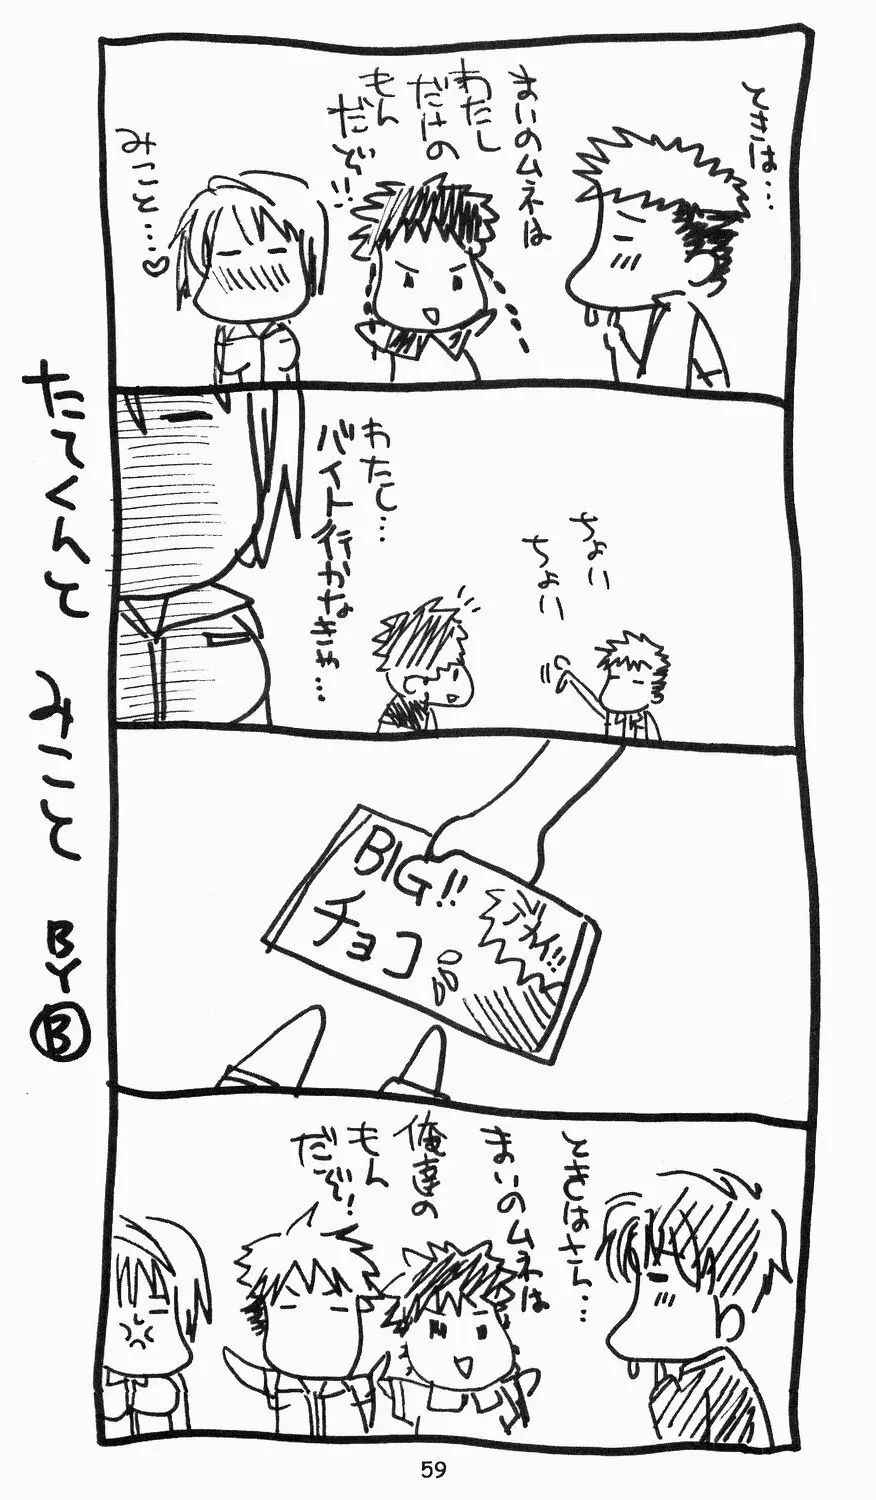 たてくんと みこと BY B
ときは…
まいのムネは
わたし
だけの
もん
だぞ!!
みこと…♡
ちょい
ちょい
わたし…
バイト行かなきゃ…
BIG!!
チョコ
ときはさん…
まいのムネは
俺達の
もん
だぞ!
59